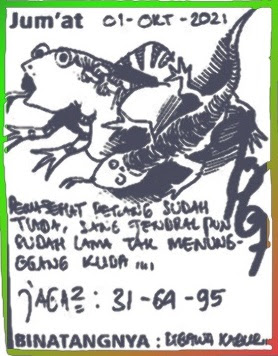 Jum'at 01-OKT-2021
PETANG SUDAH
TIADA, SANG JENDRAL PUN
SUDAH LAMA TAK MENUNG-
GGANG KUDA ...
: 31-64-95
BINATANGNYA : DIBAWA KABUR...